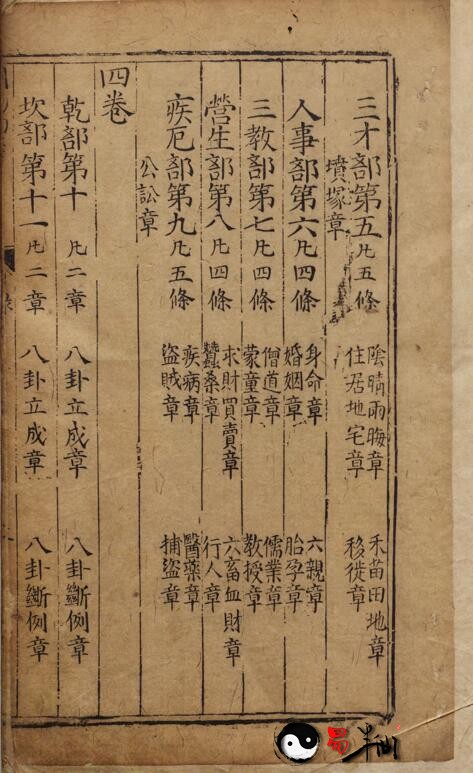 三才部第五凡五條
陰晴雨晦章 禾苗田地章
住居地宅章 移徙章
墳塚章
人事部第六凡四條
身命章 六親章
婚姻章 胎孕章
三教部第七凡四條
僧道章 儒業章
蒙童章 教授章
營生部第八凡四條
求財買賣章 六畜血財章
蠶桑章 行人章
疾厄部第九凡五條
疾病章 醫藥章
盜賊章 捕盜章
公訟章
四卷
乾部第十 凡二章 八卦立成章 八卦斷例章
坎部第十一 凡二章 八卦立成章 八卦斷例章
易半仙